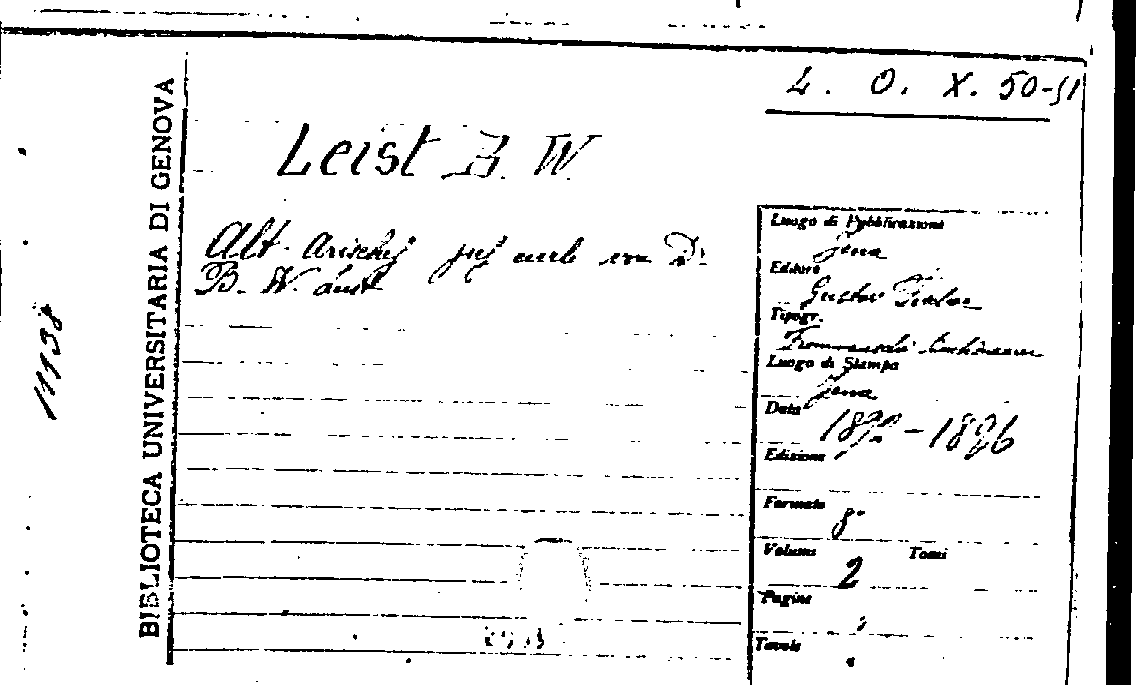 L. O. X. 50-51
BIBLIOTECA UNIVERSITARIA DI GENOVA
11138
Leist B. W.
Alt-Arisches jus civile von Dr
B. W. Leist
Luogo di Pubblicazione
Jena
Editore
Gustav Fischer
Tipogr.
Luogo di Stampa
Jena
Data
1892-1896
Edizione
Formato
8°
Volumi 2 Tomi
Pagine
Tavole